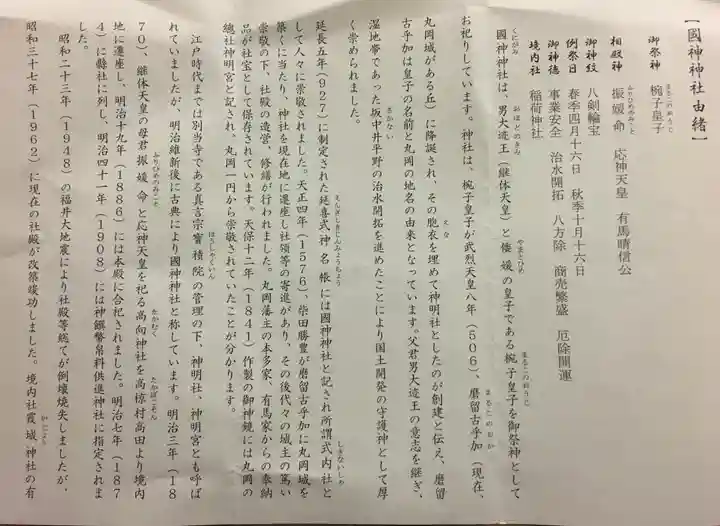 【國神神社由緒】
御祭神 椀子皇子
まるこのおうじ
相殿神 振媛命 応神天皇 有馬晴信公
ふりひめのみこと
御神紋 八剣輪宝
例祭日 春季四月十六日 秋季十月十六日
御神徳 事業安全 治水開拓 八方除 商売繁盛 厄除開運
境内社 稲荷神社
國神神社は、男大迹王（継体天皇）と倭媛の皇子である椀子皇子を御祭神として
くにがみ おほとのきみ やまとひめ まるこのおうじ
お祀りしています。神社は、椀子皇子が武烈天皇八年（506）、磨留古乎加（現在、
まるこのおか
丸岡城がある丘）に降誕され、その胞衣を埋めて神明社としたのが創建と伝え、磨留
えな
古乎加は皇子の名前と丸岡の地名の由来となっています。父君男大迹王の意志を継ぎ、
湿地帯であった坂中井平野の治水開拓を進めたことにより国土開発の守護神として厚
さかない
く崇められました。
延長五年（927）に制定された延喜式神名帳には國神神社と記され所謂式内社と
えんぎしきじんみょうちょう しきないしゃ
して人々に崇敬されました。天正四年（1576）、柴田勝豊が磨留古乎加に丸岡城を
築くに当たり、神社を現在地に遷座し社領等の寄進があり、その後代々の城主の篤い
崇敬の下、社殿の造営、修繕が行われました。丸岡藩主の本多家、有馬家からの奉納
品が社宝として保存されています。天保十二年（1841）作製の御神鏡には丸岡の
總社神明宮と記され、丸岡一円から崇敬されていたことが分かります。
江戸時代までは別当寺である真言宗寳積院の管理の下、神明社、神明宮とも呼ば
ほうしゃくいん
れていましたが、明治維新後に古典により國神神社と称しています。明治三年（18
70）、継体天皇の母君振媛命と応神天皇を祀る高向神社を高椋村高田より境内
ふりひめのみこと たかむく たかぼこそん
地に遷座し、明治十九年（1886）には本殿に合祀されました。明治七年（187
4）に縣社に列し、明治四十一年（1908）には神饌幣帛料供進神社に指定されま
した。
昭和二十三年（1948）の福井大地震により社殿等総てが倒壊焼失しましたが、
昭和三十七年（1962）に現在の社殿が改築竣功しました。境内社霞城神社の有
かじょう